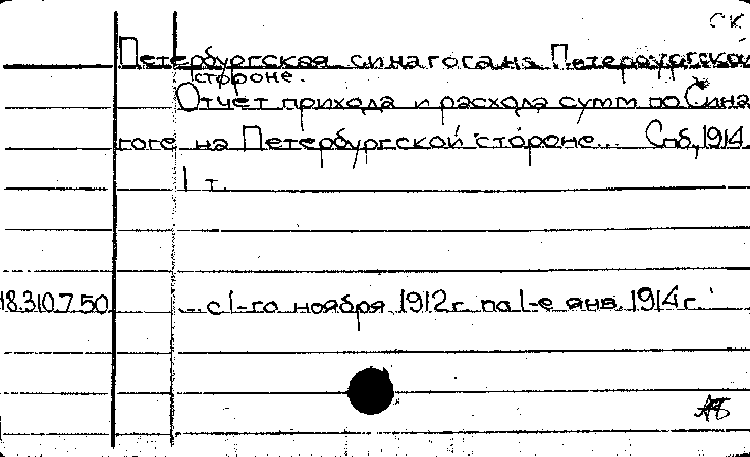 СК
Петербургская синагога на Петербургской
стороне.
Отчет прихода и расхода сумм по Сина
гоге на Петербургской стороне... Спб, 1914.
1 т.
18.310.7.50 ... с 1-го ноября 1912 г. по 1-е янв. 1914 г.